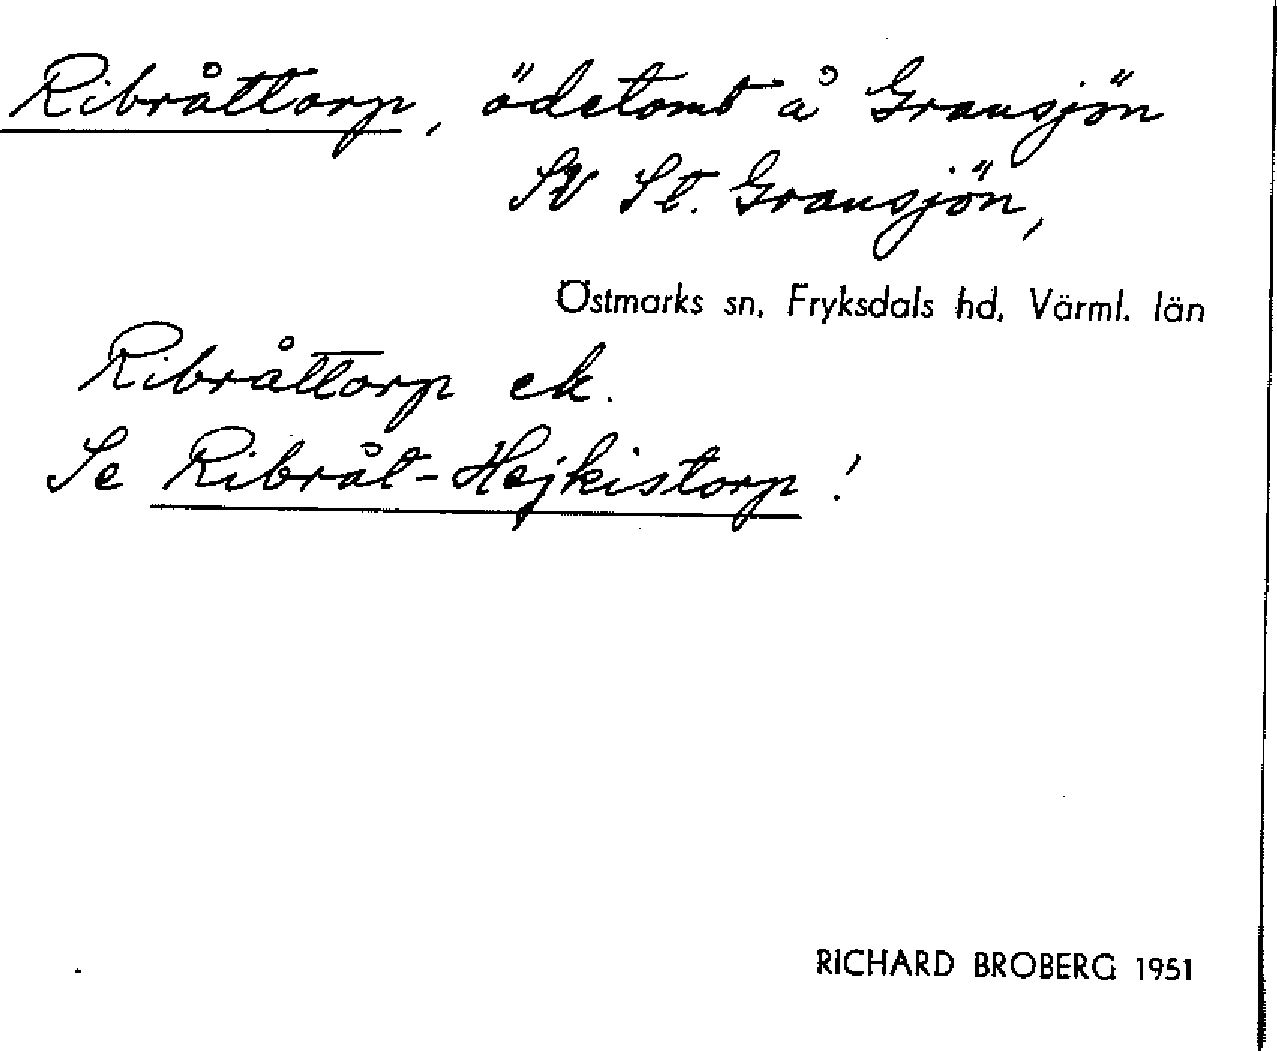 Ribråttorp, ödetomt å Gransjön
SV St. Gransjön,
Östmarks sn, Fryksdals hd, Värml. län
Ribråttorp ek.
Se Ribråt-Hejkistorp!
RICHARD BROBERG 1951